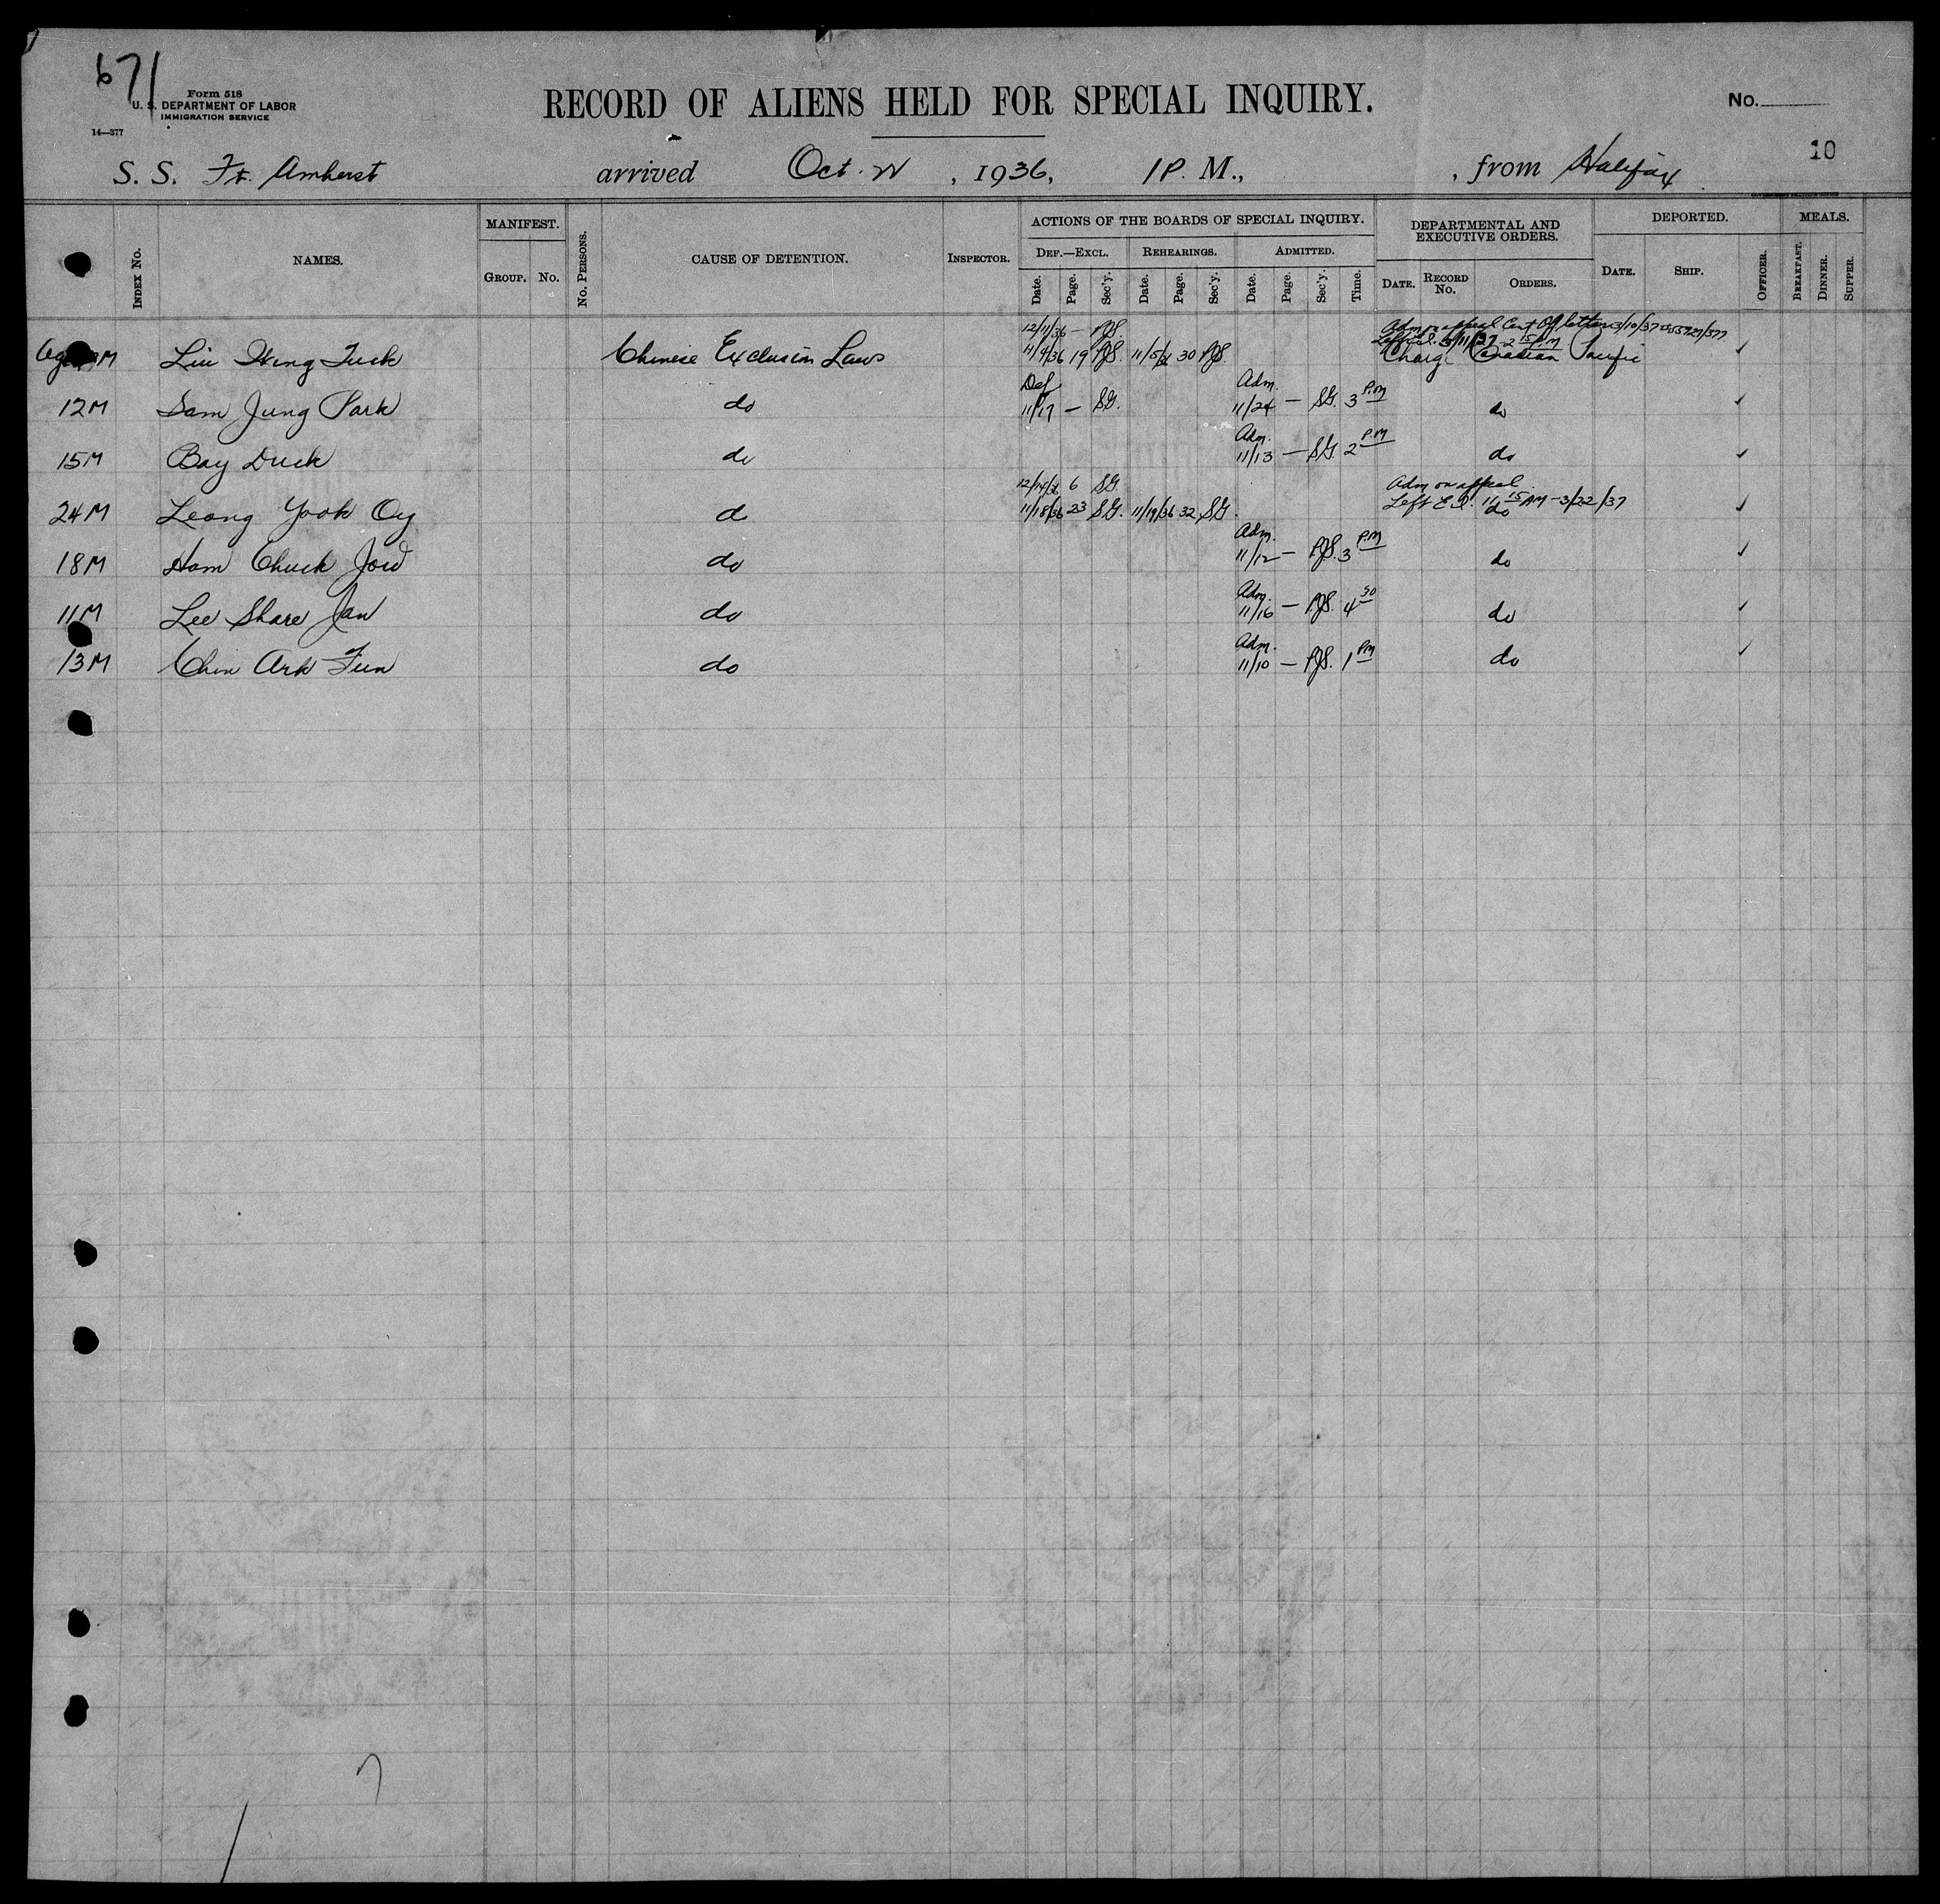 671
Form 518
U. S. DEPARTMENT OF LABOR
IMMIGRATION SERVICE
14—377
RECORD OF ALIENS HELD FOR SPECIAL INQUIRY.
No.
10
S. S. Ft. Amherst arrived Oct. , 1936, 1 P. M., , from Halifax
INDEX No. NAMES. MANIFEST. GROUP. No. No. PERSONS. CAUSE OF DETENTION. INSPECTOR. ACTIONS OF THE BOARDS OF SPECIAL INQUIRY. DEPARTMENTAL AND EXECUTIVE ORDERS. DEPORTED. MEALS.
DEF.—EXCL. REHEARINGS. ADMITTED.
Date. Page. Sec'y. Date. Page. Sec'y. Date. Page. Sec'y. Time. DATE. RECORD No. ORDERS. DATE. SHIP. OFFICER. BREAKFAST. DINNER. SUPPER.
12/11/36 — PJS. Adm on appeal Cent Off letter 3/10/37
Left E.I. 3/11/37 - 2 15 P.M
M Wing Tuck Chinese Exclusion Laws 11/4/36 19 PJS. 11/5/36 30 PJS. Charge Canadian Pacific ✓
Def Adm.
12M Sam Jung Park do 11/17 — S.G. 11/24 — S.G. 3 P.M do ✓
Adm.
15M Bay Duck do 11/13 — S.G. 2 P.M do ✓
12/14/36 6 S.G. Adm on appeal
Left E.I. 11 15 AM - 3/22/37
24M Leong Yook Oy d 11/18/36 23 S.G. 11/19/36 32 S.G. do ✓
Adm.
18M Ham Chuck Jow do 11/12 — PJS. 3 P.M do ✓
Adm.
11M Lee Share Jan do 11/16 — PJS. 4 30 do ✓
Adm.
13M Chin Ark Fun do 11/10 — PJS. 1 PM do ✓
7